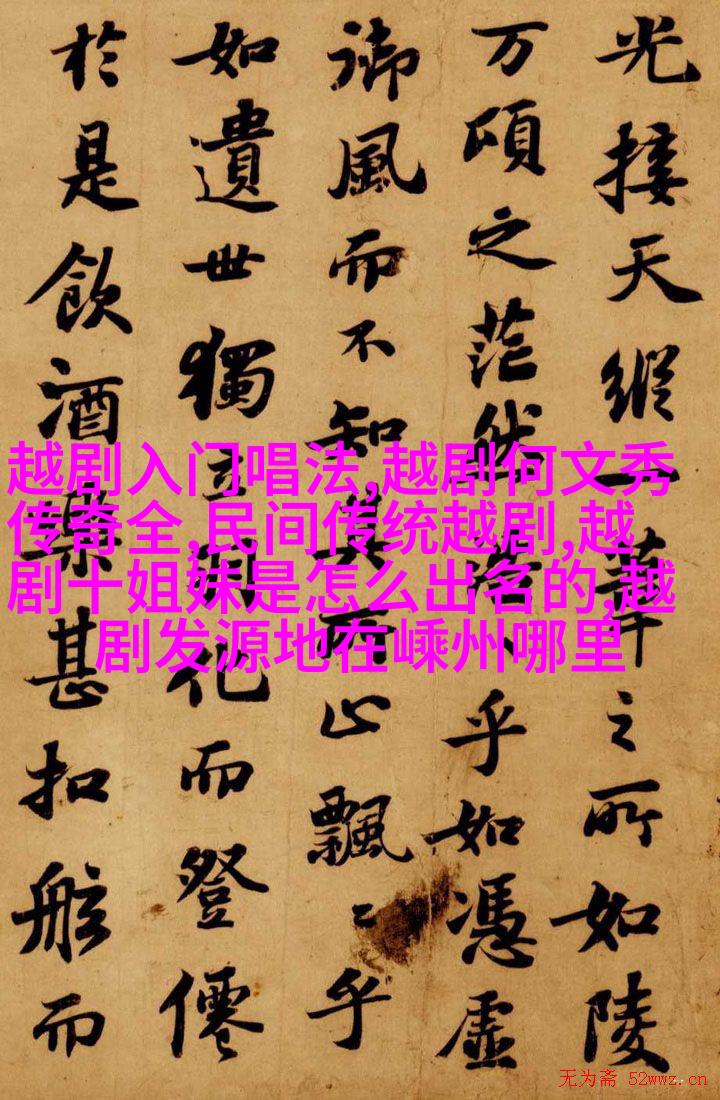 光接天縱一葦之所如陵
万頃之茫然浩〻乎如憑虚
御風而不知其所止飄〻乎
如遺世獨立羽化而登僊
於是飲酒樂甚扣舷而
越剧入门唱法,越剧何文秀
传奇全,民间传统越剧,越
剧十姐妹是怎么出名的,越
剧发源地在嵊州哪里
无为斋 52wwz.cn